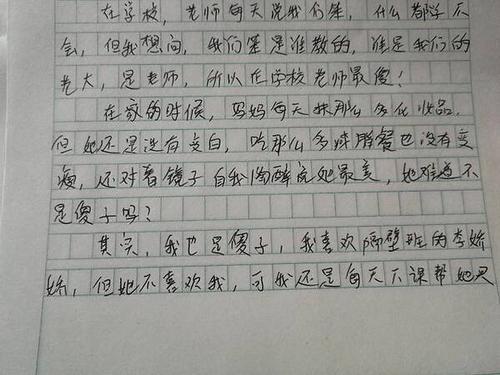 在学校，老师每天说我们笨，什么都学不
会，但我想问，我们笨是谁教的，谁是我们的
老大，是老师，所以在学校老师最傻！
在家的时候，妈妈每天抹那么多化妆品，
但她还是没有变白，吃那么多减肥餐也没有变
瘦，还对着镜子自我陶醉说她最美，她难道不
是傻子吗？
其实，我也是傻子，我喜欢隔壁班的李娇
娇，但她不喜欢我，可我还是每天下课帮她买